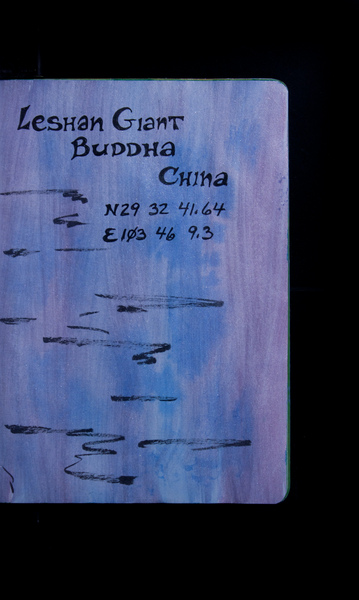 Leshan Giant
Buddha
China
N29 32 41.64
E103 46 9.3